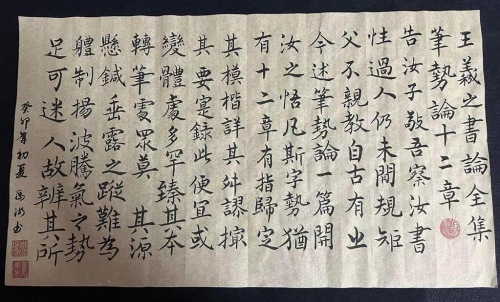 王羲之書論全集
筆勢論十二章
告汝子敬吾察汝書
性過人仍未閑規矩
父不親教自古有之
今述筆勢論一篇開
汝之悟凡斯字勢猶
有十二章有指歸定
其模楷詳其舛謬撮
其要寔錄此便宜或
變體處多罕臻其本
轉筆處眾莫其源
懸鍼垂露之蹤難為
體制揚波騰氣之勢
足可迷人故辨其所
癸卯年初夏書